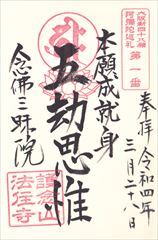 大阪新四十八願
阿彌陀巡礼
第一番
奉拝
令和四年
三月二十八日
本願成就身
五劫思惟
念佛三昧院
法住寺